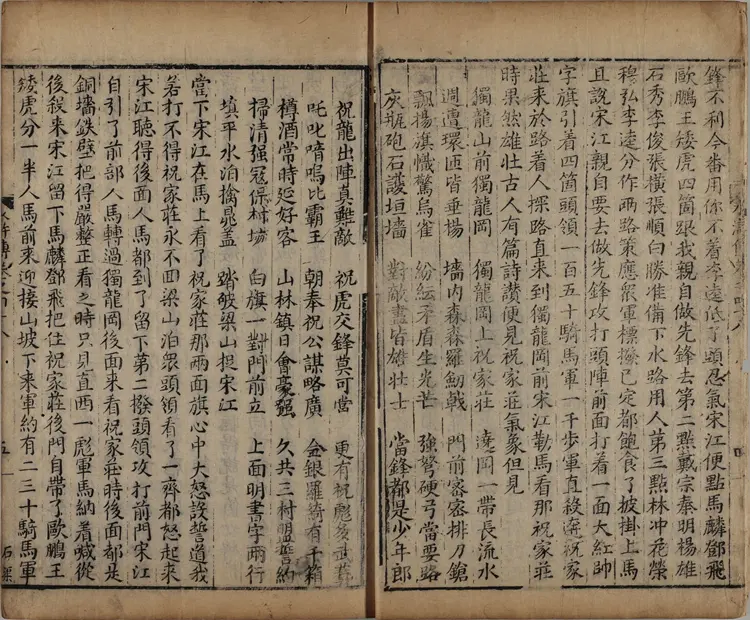 鋒不利今番用你不着李逵低了頭忍氣宋江便點馬麟鄧飛
歐鵬王矮虎四箇跟我親自做先鋒去第二點戴宗秦明楊雄
石秀李俊張橫張順白勝准備下水路用人第三點林冲花榮
穆弘李逵分作兩路策應衆軍標撥已定都飽食了披掛上馬
且說宋江親自要去做先鋒攻打頭陣前面打着一面大紅帥
字旗引着四箇頭領一百五十騎馬軍一千步軍直殺奔祝家
莊來於路着人探路直來到獨龍岡前宋江勒馬看那祝家莊
時果然雄壯古人有篇詩讚便見祝家莊氣象但見
獨龍山前獨龍岡 獨龍岡上祝家莊 遶岡一帶長流水
週遭環匝皆垂楊 墻内森森羅劒戟 門前密密排刀鎗
飄揚旗幟驚鳥雀 紛紜矛盾生光芒 強弩硬弓當要路
灰瓶砲石護垣墻 對敵盡皆雄壯士 當鋒都是少年郎
祝龍出陣真難敵 祝虎交鋒莫可當 更有祝彪多武藝
吒叱喑嗚比霸王 朝奉祝公謀略廣 金銀羅綺有千箱
樽酒常時延好客 山林鎮日會豪強 久共三村盟誓約
掃清強寇保村坊 白旗一對門前立 上面明書字兩行
填平水泊擒晁盖 踏破梁山捉宋江
當下宋江在馬上看了祝家莊那兩面旗心中大怒設誓道我
若打不得祝家莊永不回梁山泊衆頭領看了一齊都怒起來
宋江聽得後面人馬都到了留下第二撥頭領攻打前門宋江
自引了前部人馬轉過獨龍岡後面來看祝家莊時後面都是
銅墻鉄壁把得嚴整正看之時只見直西一彪軍馬納着喊從
後殺來宋江留下馬麟鄧飛把住祝家莊後門自帶了歐鵬王
矮虎分一半人馬前來迎接山坡下來軍約有二三十騎馬軍
五